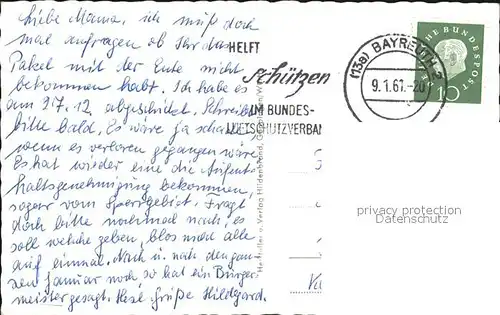 Liebe Mama, ich muß doch
mal anfragen ob Ihr das
Paket mit der Ente nicht
bekommen habt. Ich habe es
am 27.12 abgeschickt. Schreibt
bitte bald. Es wäre ja schade
wenn es verloren gegangen wäre
Es hat wieder eine die Aufent-
haltsgenehmigung bekommen,
sogar vom Sperrgebiet. Fragt
doch bitte nochmal nach, es
soll welche geben, blos mal alle
auf einmal. Nach u. nach den gan-
zen Januar noch so hat ein Bürger
meister gesagt. Herzl. Grüße Hildegard.
HELFT
schützen
IM BUNDES-
LUFTSCHUTZVERBAN
(13a) BAYREUTH 2
9.1.61.-20
DEUTSCHE BUNDESPOST
10
Hersteller u. Verlag Hildenbrand,
privacy protection
Datenschutz